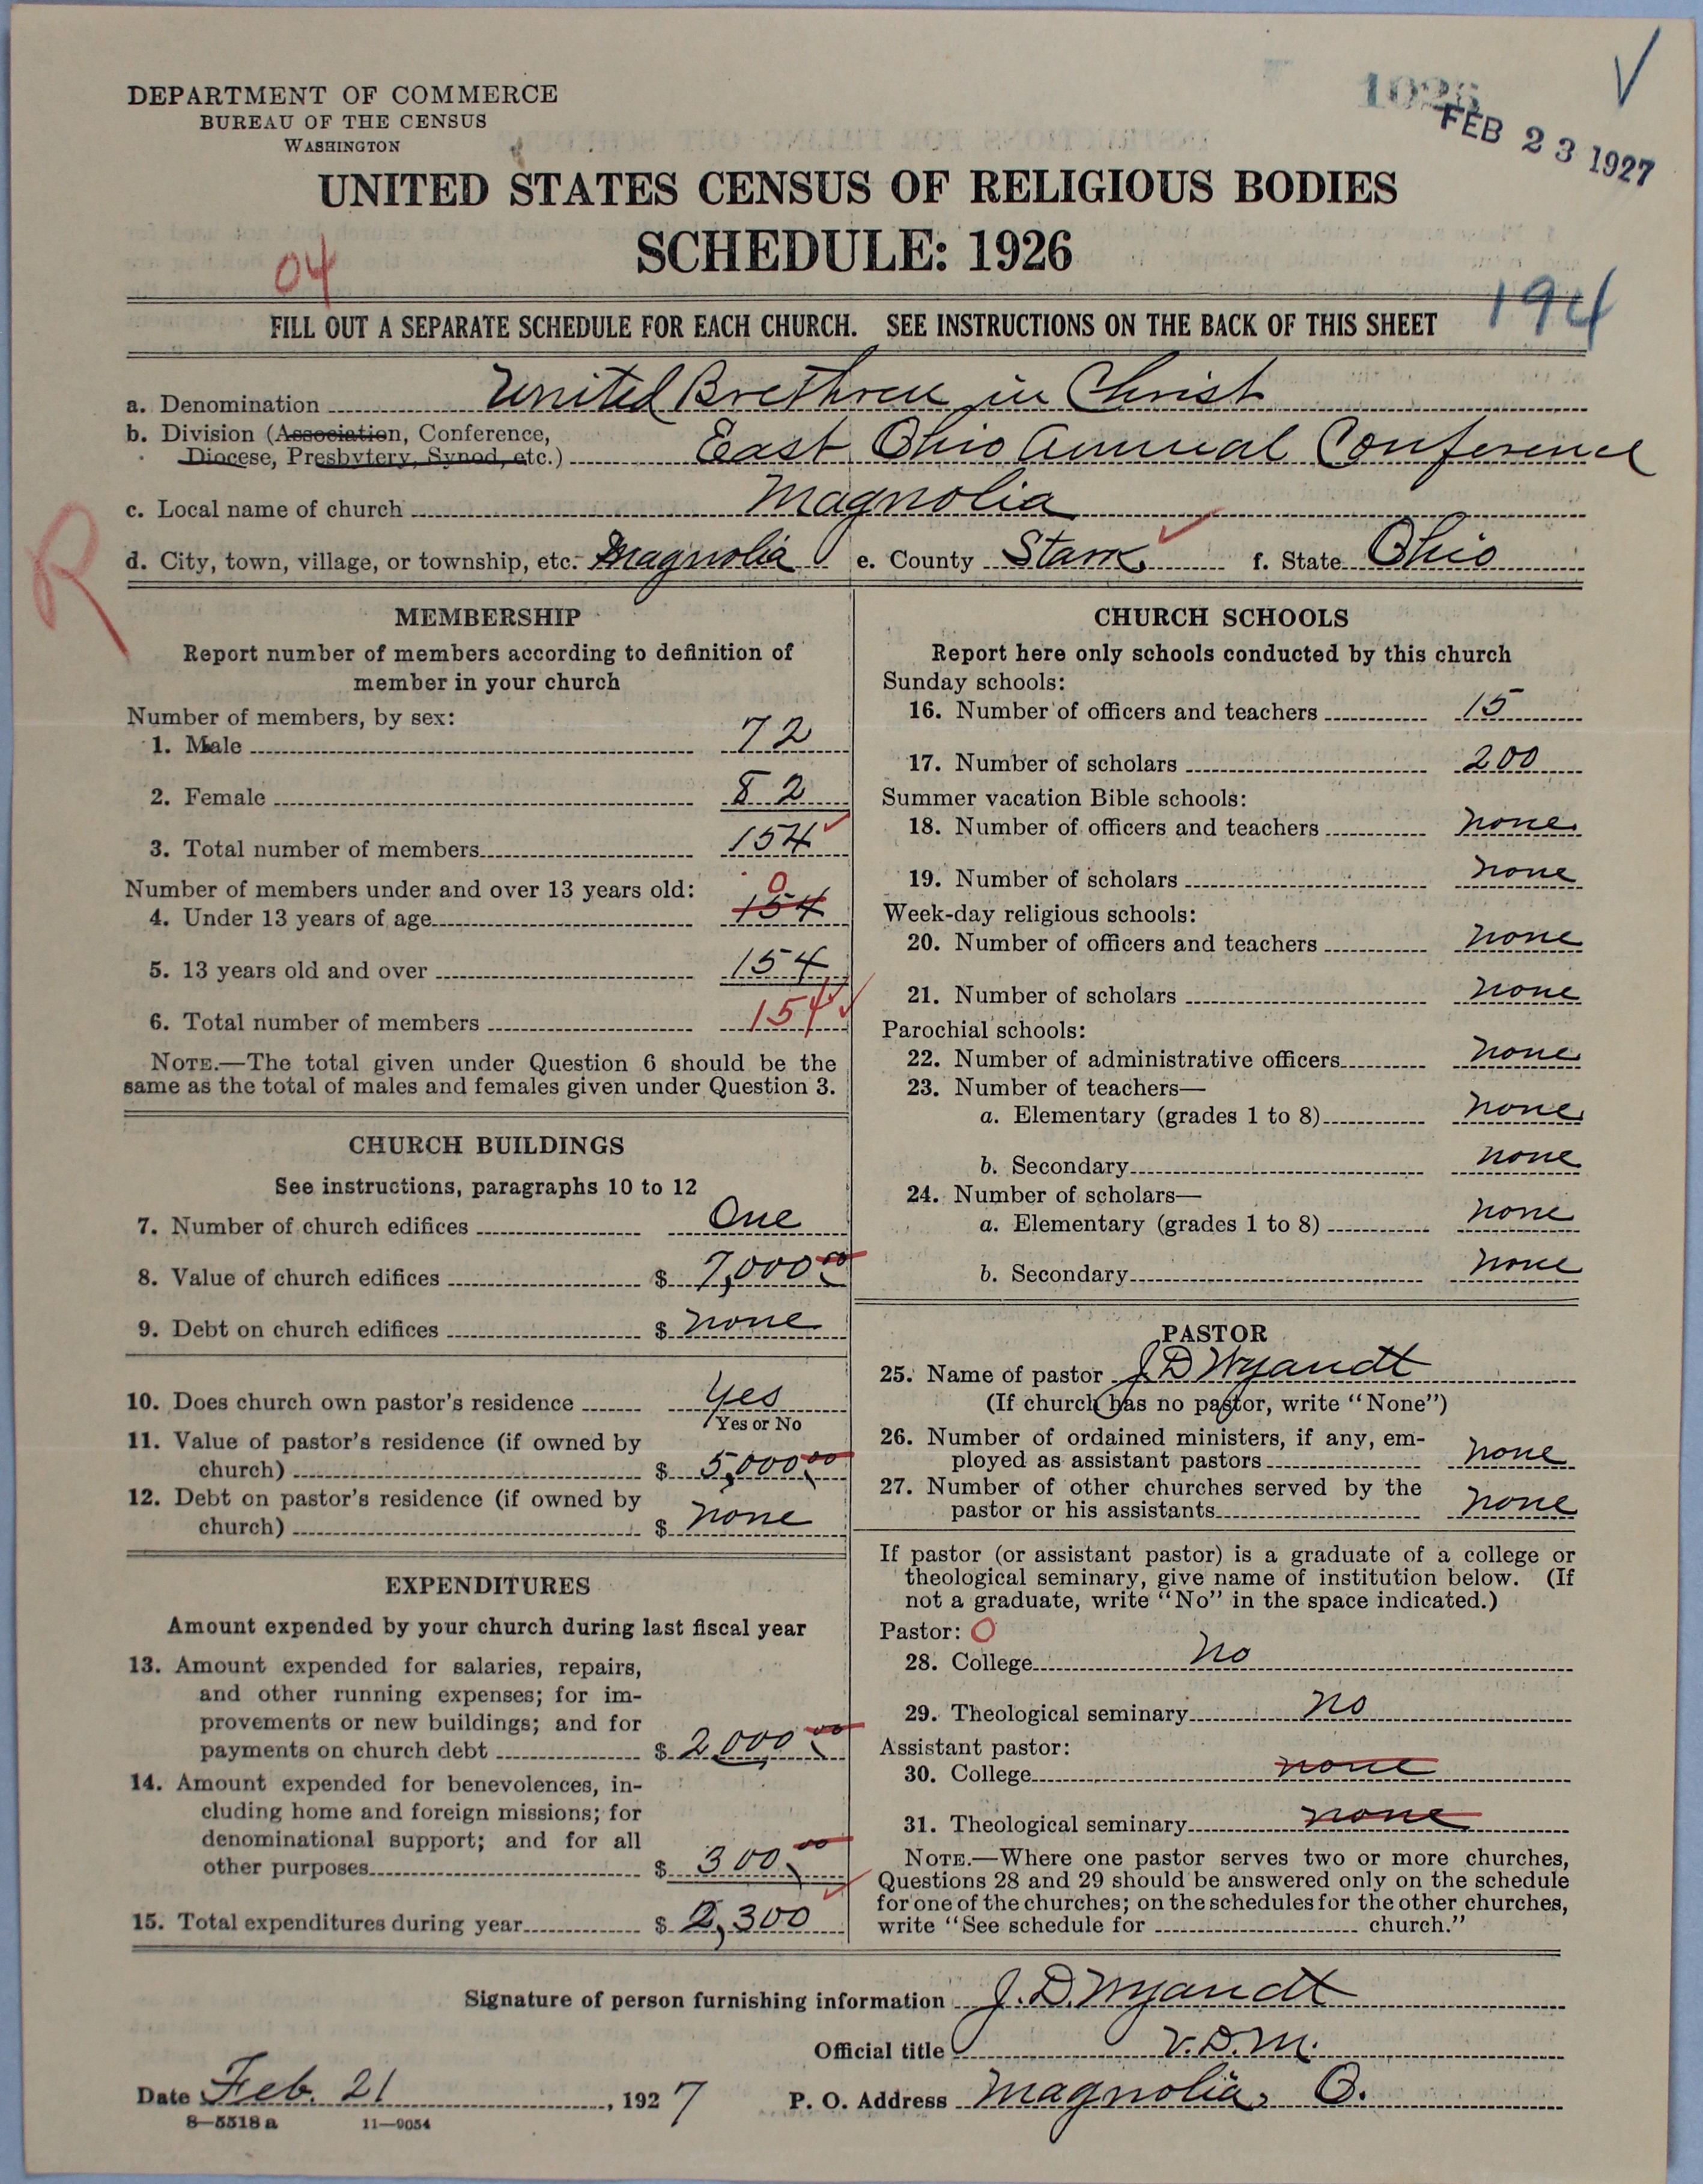 DEPARTMENT OF COMMERCE
BUREAU OF THE CENSUS
WASHINGTON
1926
FEB 23 1927
UNITED STATES CENSUS OF RELIGIOUS BODIES
SCHEDULE: 1926
04
194
FILL OUT A SEPARATE SCHEDULE FOR EACH CHURCH. SEE INSTRUCTIONS ON THE BACK OF THIS SHEET
a. Denomination United Brethren in Christ
b. Division (Association, Conference,
Diocese, Presbytery, Synod, etc.) East Ohio Annual Conference
c. Local name of church Magnolia
d. City, town, village, or township, etc. Magnolia e. County Stark f. State Ohio
R
MEMBERSHIP
Report number of members according to definition of
member in your church
Number of members, by sex:
1. Male 72
2. Female 82
3. Total number of members 154
Number of members under and over 13 years old: 0
4. Under 13 years of age 154
5. 13 years old and over 154
6. Total number of members 154
NOTE.—The total given under Question 6 should be the
same as the total of males and females given under Question 3.
CHURCH BUILDINGS
See instructions, paragraphs 10 to 12
7. Number of church edifices One
8. Value of church edifices $ 7,000 00
9. Debt on church edifices $ none
10. Does church own pastor's residence Yes
Yes or No
11. Value of pastor's residence (if owned by
church) $ 5,000 00
12. Debt on pastor's residence (if owned by
church) $ none
EXPENDITURES
Amount expended by your church during last fiscal year
13. Amount expended for salaries, repairs,
and other running expenses; for im-
provements or new buildings; and for
payments on church debt $ 2,000 00
14. Amount expended for benevolences, in-
cluding home and foreign missions; for
denominational support; and for all
other purposes $ 300 00
15. Total expenditures during year $ 2,300
CHURCH SCHOOLS
Report here only schools conducted by this church
Sunday schools:
16. Number of officers and teachers 15
17. Number of scholars 200
Summer vacation Bible schools:
18. Number of officers and teachers none
19. Number of scholars none
Week-day religious schools:
20. Number of officers and teachers none
21. Number of scholars none
Parochial schools:
22. Number of administrative officers none
23. Number of teachers—
a. Elementary (grades 1 to 8) none
b. Secondary none
24. Number of scholars—
a. Elementary (grades 1 to 8) none
b. Secondary none
PASTOR
25. Name of pastor J D Wyandt
(If church has no pastor, write "None")
26. Number of ordained ministers, if any, em-
ployed as assistant pastors none
27. Number of other churches served by the
pastor or his assistants none
If pastor (or assistant pastor) is a graduate of a college or
theological seminary, give name of institution below. (If
not a graduate, write "No" in the space indicated.)
Pastor: 0
28. College no
29. Theological seminary no
Assistant pastor:
30. College none
31. Theological seminary none
NOTE.—Where one pastor serves two or more churches,
Questions 28 and 29 should be answered only on the schedule
for one of the churches; on the schedules for the other churches,
write "See schedule for church."
Signature of person furnishing information J. D. Wyandt
Official title V.D.M.
Date Feb. 21, 1927 P. O. Address Magnolia, O.
8—5518 a 11—9054